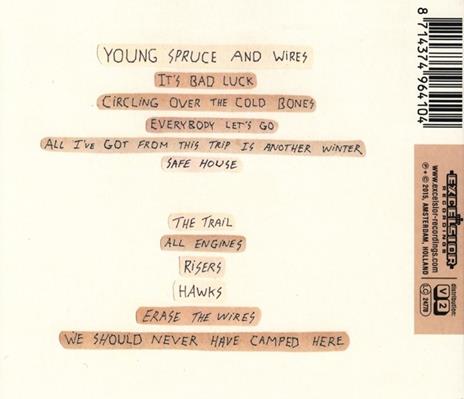 YOUNG SPRUCE AND WIRES
IT'S BAD LUCK
CIRCLING OVER THE COLD BONES
EVERYBODY LET'S GO
ALL I'VE GOT FROM THIS TRIP IS ANOTHER WINTER
SAFE HOUSE
THE TRAIL
ALL ENGINES
RISERS
HAWKS
ERASE THE WIRES
WE SHOULD NEVER HAVE CAMPED HERE
8 714374 964104
EXCELSIOR
RECORDINGS
www.excelsior-recordings.com
℗ + © 2015, AMSTERDAM, HOLLAND
distribution:
V2
LC 24178